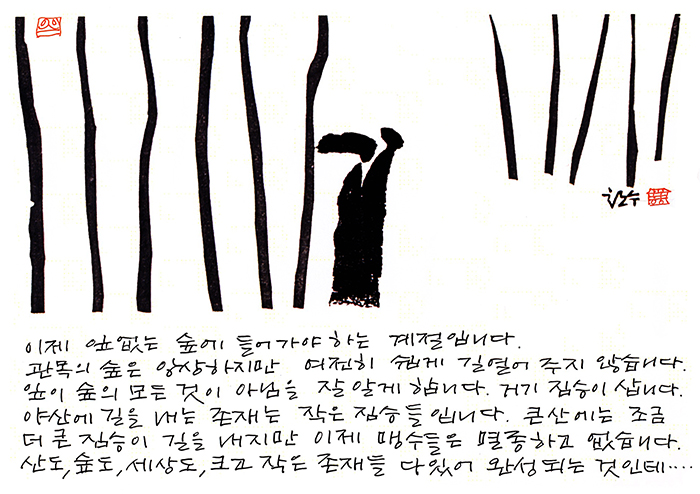 철수
이제 잎없는 숲에 들어가야 하는 계절입니다.
관목의 숲은 앙상하지만 여전히 쉽게 길열어 주지 않습니다.
잎이 숲의 모든 것이 아님을 잘 알게 합니다. 거기 짐승이 삽니다.
야산에 길을 내는 존재는 작은 짐승들 입니다. 큰산에는 조금
더 큰 짐승이 길을 내지만 이제 맹수들은 멸종하고 없습니다.
산도, 숲도, 세상도, 크고 작은 존재들 다 있어 완성되는 것인데····